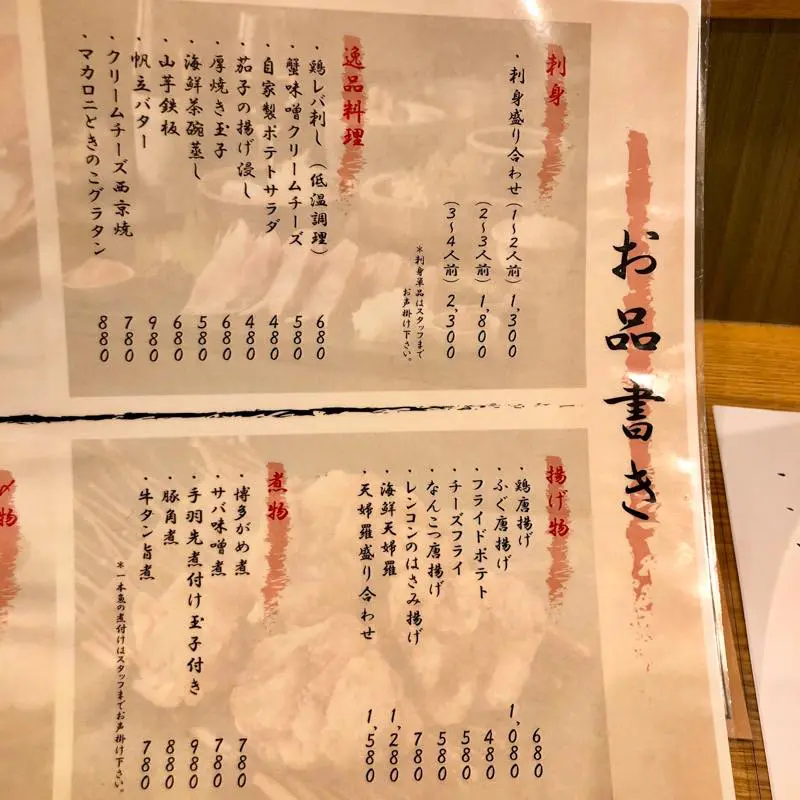 お品書き
刺身
・刺身盛り合わせ(1~2人前) 1,300
(2~3人前) 1,800
(3~4人前) 2,300
*刺身単品はスタッフまで
お声掛け下さい。
逸品料理
・鶏レバ刺し(低温調理) 680
・蟹味噌クリームチーズ 580
・自家製ポテトサラダ 480
・茄子の揚げ浸し 480
・厚焼き玉子 680
・海鮮茶碗蒸し 580
・山芋鉄板 680
・帆立バター 980
・クリームチーズ西京焼 780
・マカロニときのこグラタン 880
揚げ物
・鶏唐揚げ 680
・ふぐ唐揚げ 1,080
・フライドポテト 480
・チーズフライ 580
・なんこつ唐揚げ 580
・レンコンのはさみ揚げ 780
・海鮮天婦羅 1,280
・天婦羅盛り合わせ 1,580
煮物
・博多がめ煮 780
・サバ味噌煮 780
・手羽先煮付け玉子付き 980
・豚角煮 880
・牛タン旨煮 780
*一本魚の煮付けはスタッフまでお声掛け下さい。
〆物